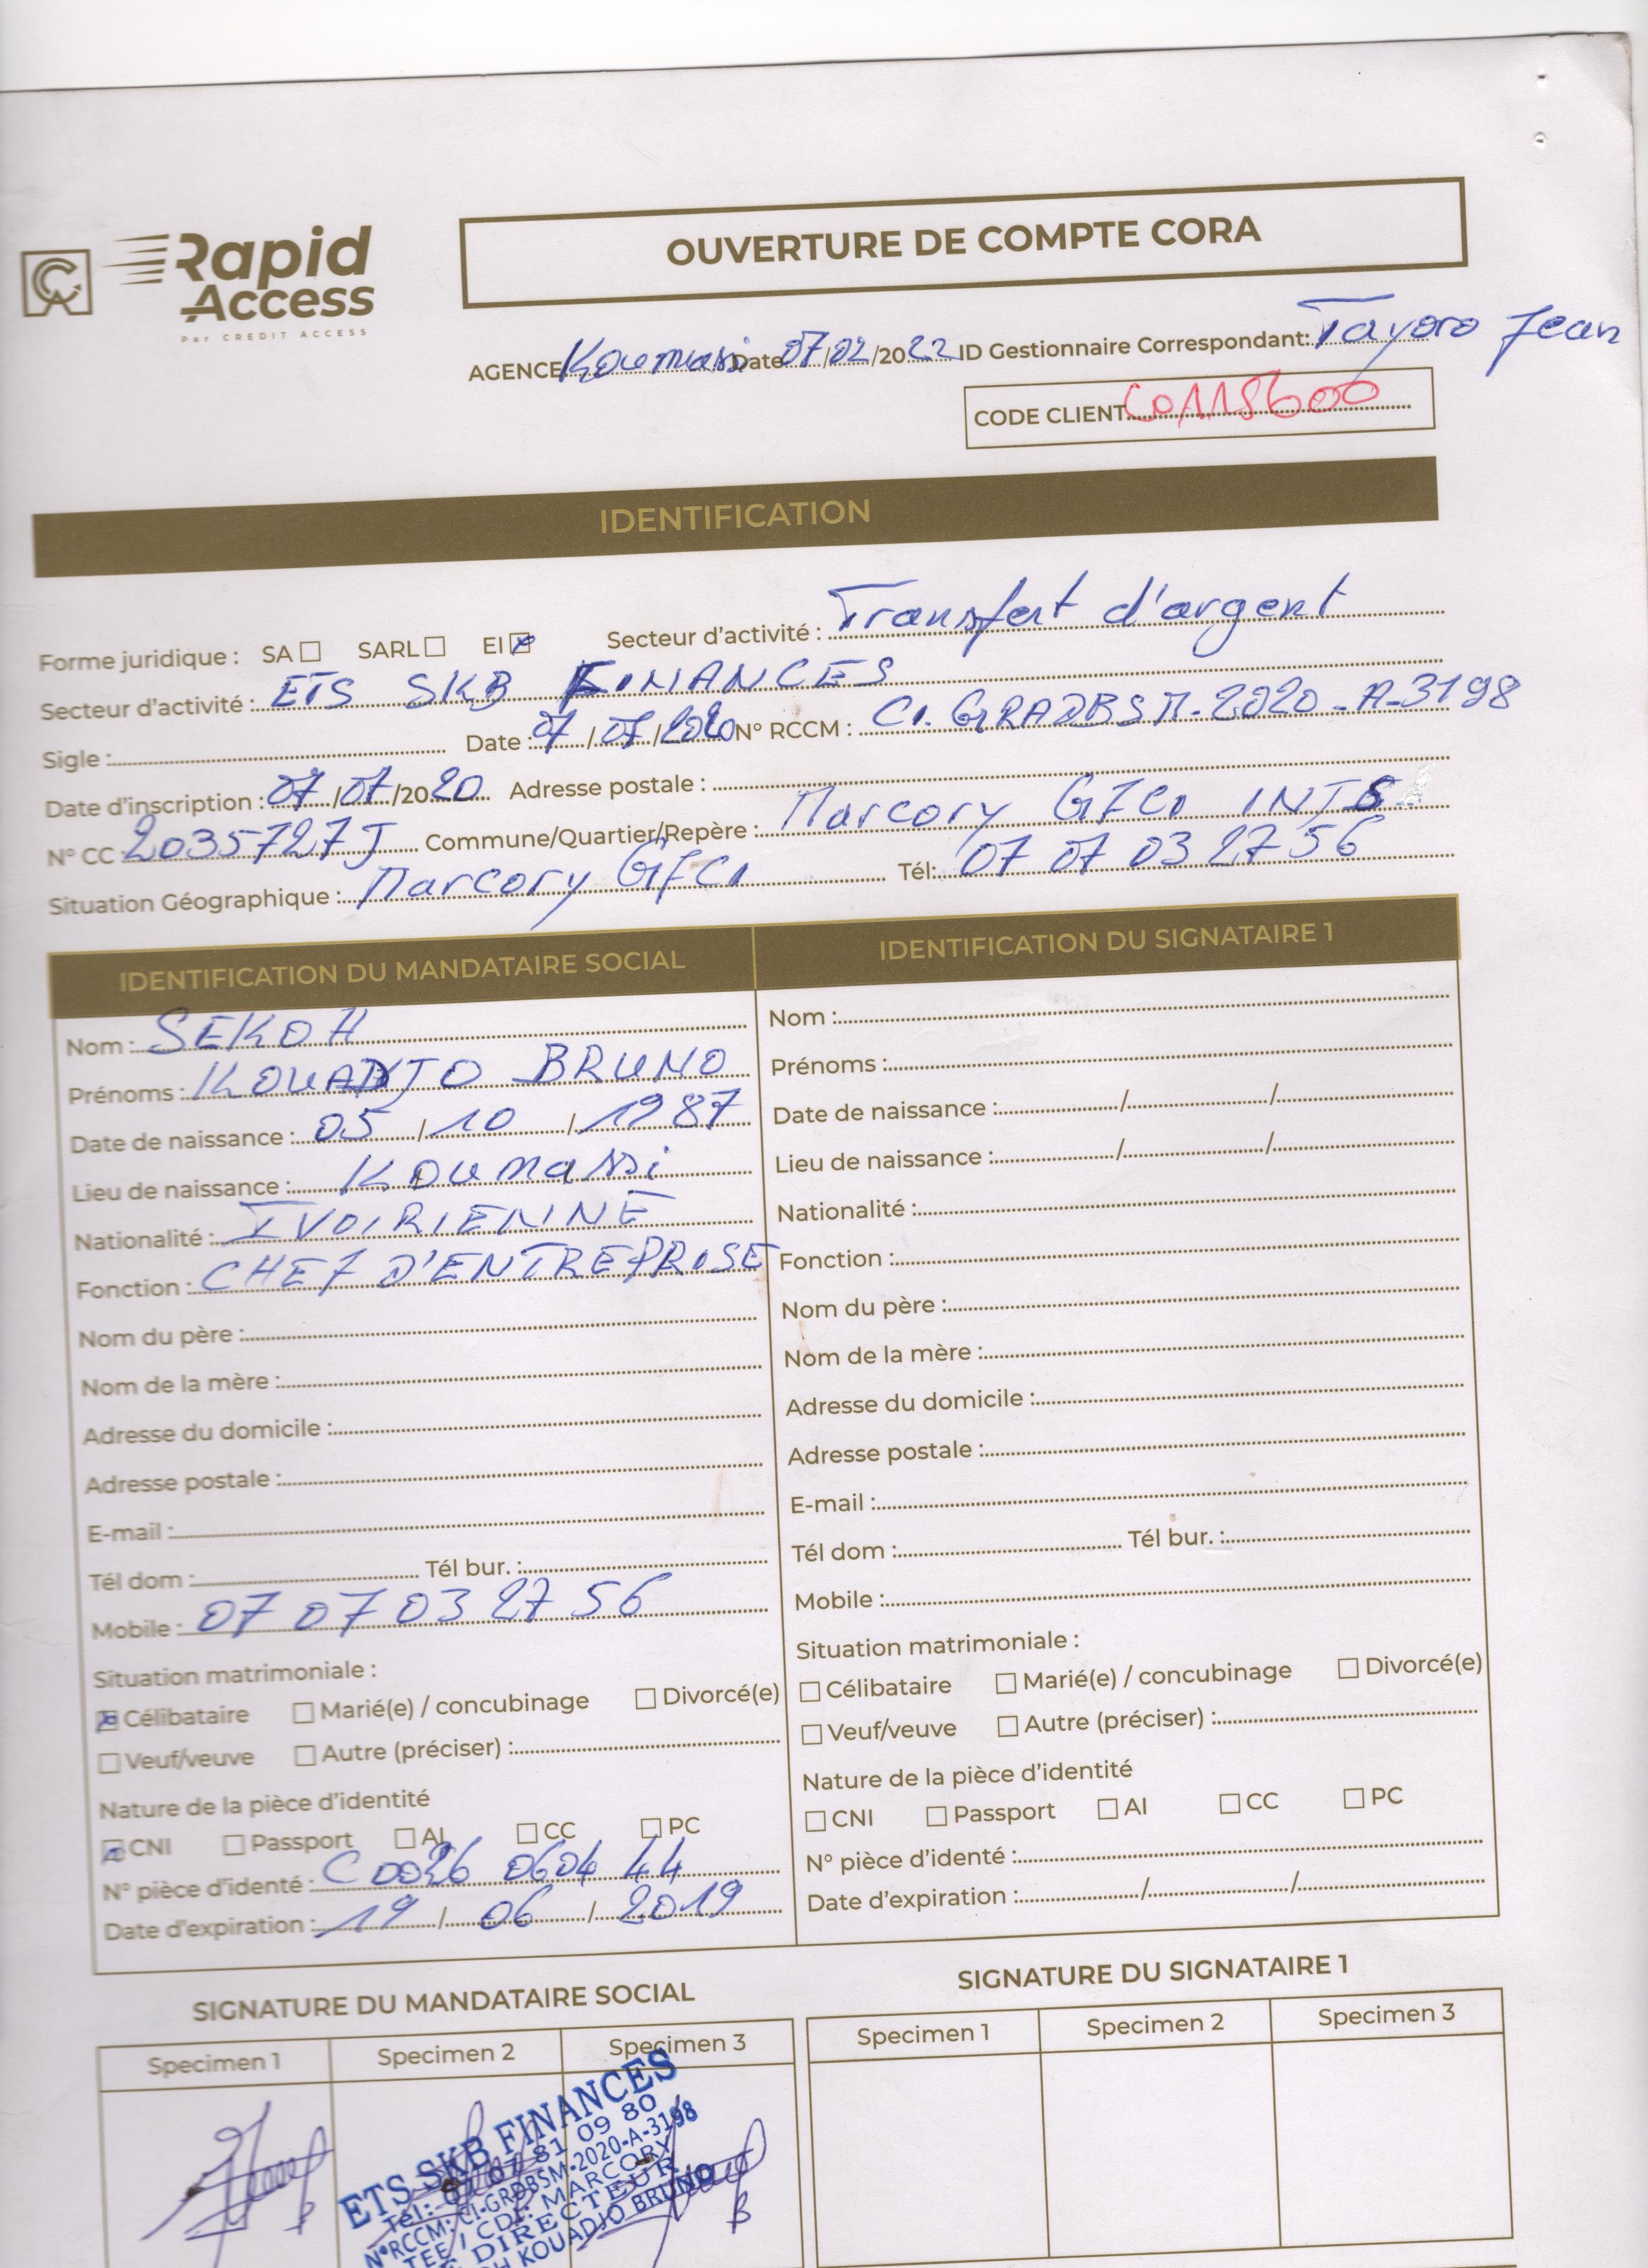 CA Rapid Access
Par CREDIT ACCESS
OUVERTURE DE COMPTE CORA
AGENCE Koumassi Date 07/02/2022 ID Gestionnaire Correspondant: Tayoro Jean
CODE CLIENT C0118600
IDENTIFICATION
Forme juridique : SA ☐ SARL ☐ EI ☒ Secteur d'activité : Transfert d'argent
Secteur d'activité : ETS SKB FINANCES
Sigle : Date : 07/07/2020 N° RCCM : CI. GRADBSM-2020-A-3198
Date d'inscription : 07/07/2020 Adresse postale :
N° CC 2035727J Commune/Quartier/Repère : Marcory GFCI
Situation Géographique : Marcory GFCI Tél: 07 07 03 27 56
IDENTIFICATION DU MANDATAIRE SOCIAL
Nom : SEKOH
Prénoms : KOUADJO BRUNO
Date de naissance : 05/10/1987
Lieu de naissance : Koumassi
Nationalité : IVOIRIENNE
Fonction : CHEF D'ENTREPRISE
Nom du père :
Nom de la mère :
Adresse du domicile :
Adresse postale :
E-mail :
Tél dom : Tél bur. :
Mobile : 07 07 03 27 56
Situation matrimoniale :
☒ Célibataire ☐ Marié(e) / concubinage ☐ Divorcé(e)
☐ Veuf/veuve ☐ Autre (préciser) :
Nature de la pièce d'identité
☒ CNI ☐ Passport ☐ AI ☐ CC ☐ PC
N° pièce d'identé : C0026 0604 44
Date d'expiration : 19/06/2019
IDENTIFICATION DU SIGNATAIRE 1
Nom :
Prénoms :
Date de naissance : / /
Lieu de naissance : / /
Nationalité :
Fonction :
Nom du père :
Nom de la mère :
Adresse du domicile :
Adresse postale :
E-mail :
Tél dom : Tél bur. :
Mobile :
Situation matrimoniale :
☐ Célibataire ☐ Marié(e) / concubinage ☐ Divorcé(e)
☐ Veuf/veuve ☐ Autre (préciser) :
Nature de la pièce d'identité
☐ CNI ☐ Passport ☐ AI ☐ CC ☐ PC
N° pièce d'identé :
Date d'expiration : / /
SIGNATURE DU MANDATAIRE SOCIAL
Specimen 1 Specimen 2 Specimen 3
ETS SKB FINANCES
Tél: 07 67 81 09 80
N°RCCM: CI-GRDBSM-2020-A-3198
MARCORY
DIRECTEUR
KOUADJO BRUNO
SIGNATURE DU SIGNATAIRE 1
Specimen 1 Specimen 2 Specimen 3